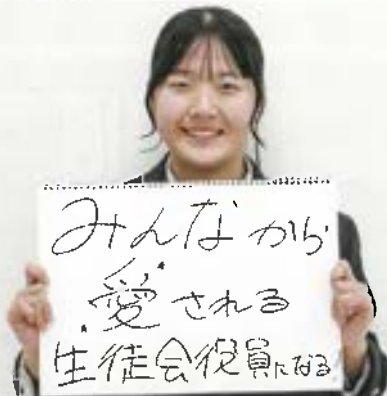 みんなから
愛される
生徒会役員になる